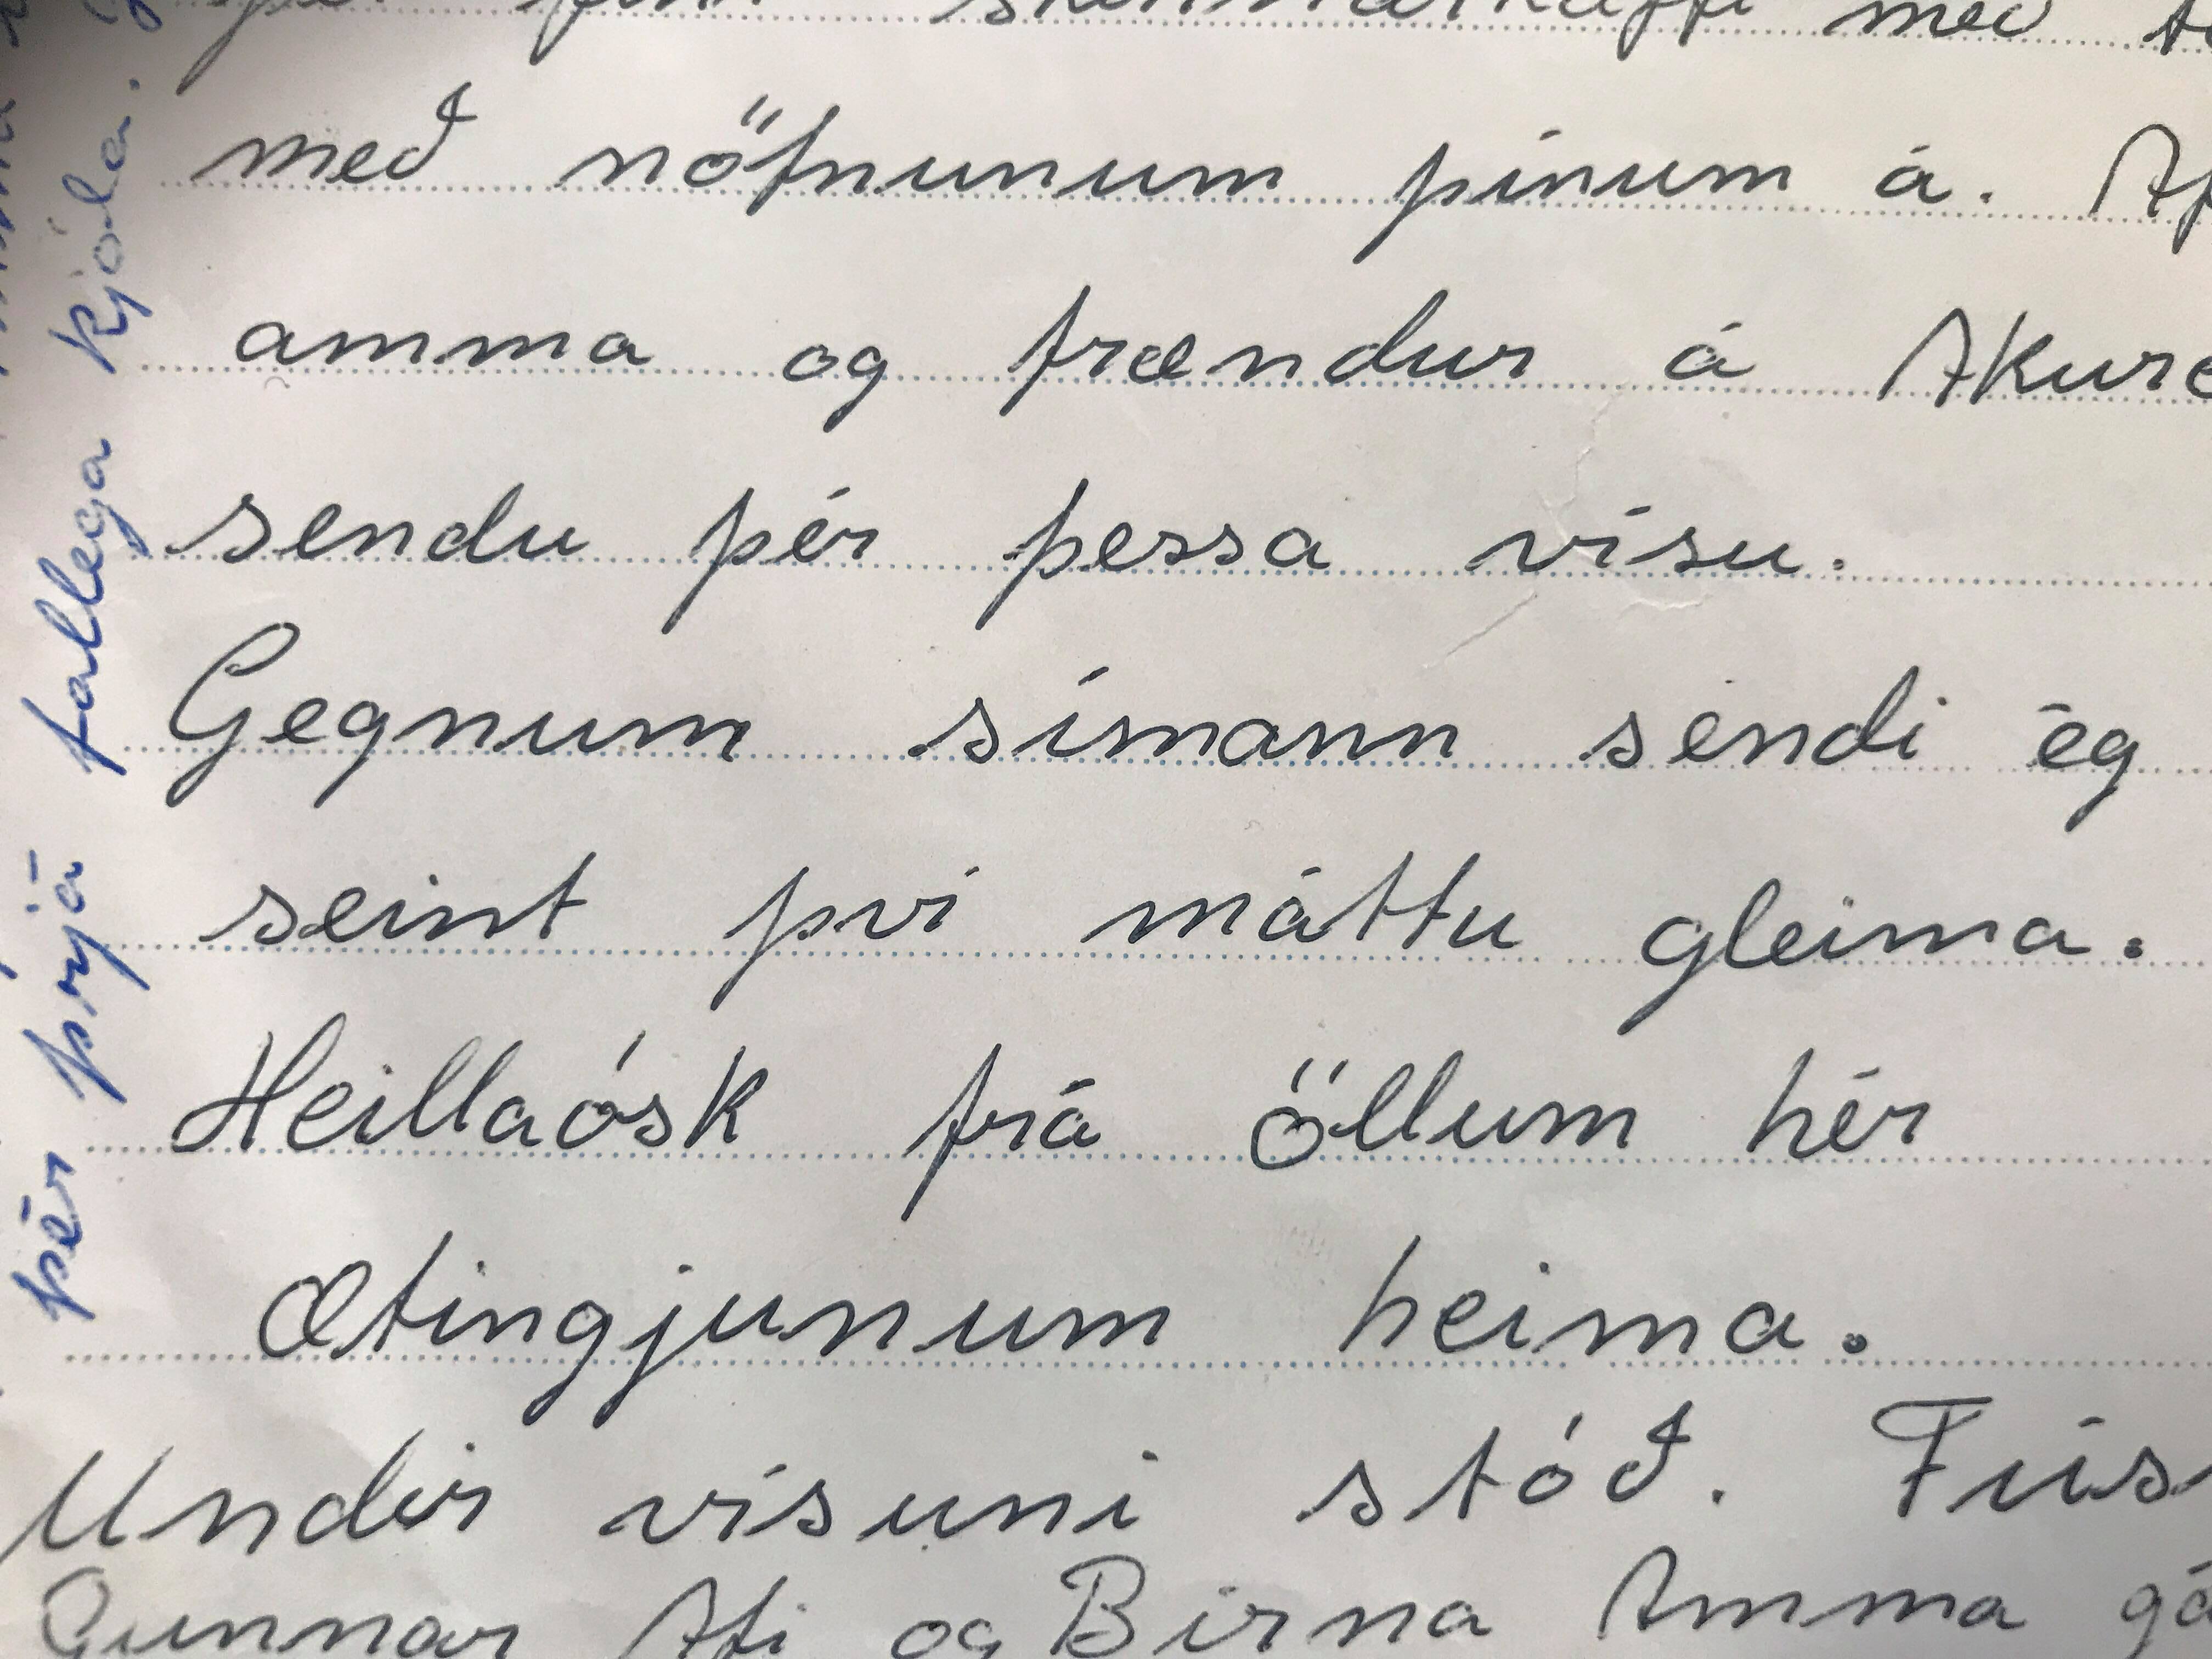 með
með nöfnunum þínum á.
amma og frændur á
sendu þér þessa vísu.
Gegnum símann sendi ég
seint því máttu gleima.
Heillaósk frá öllum hér
Ætingjunum heima.
Undir vísuni stóð.
Gunnar Afi og Birna Amma
þér þrjá fallega kjóla.